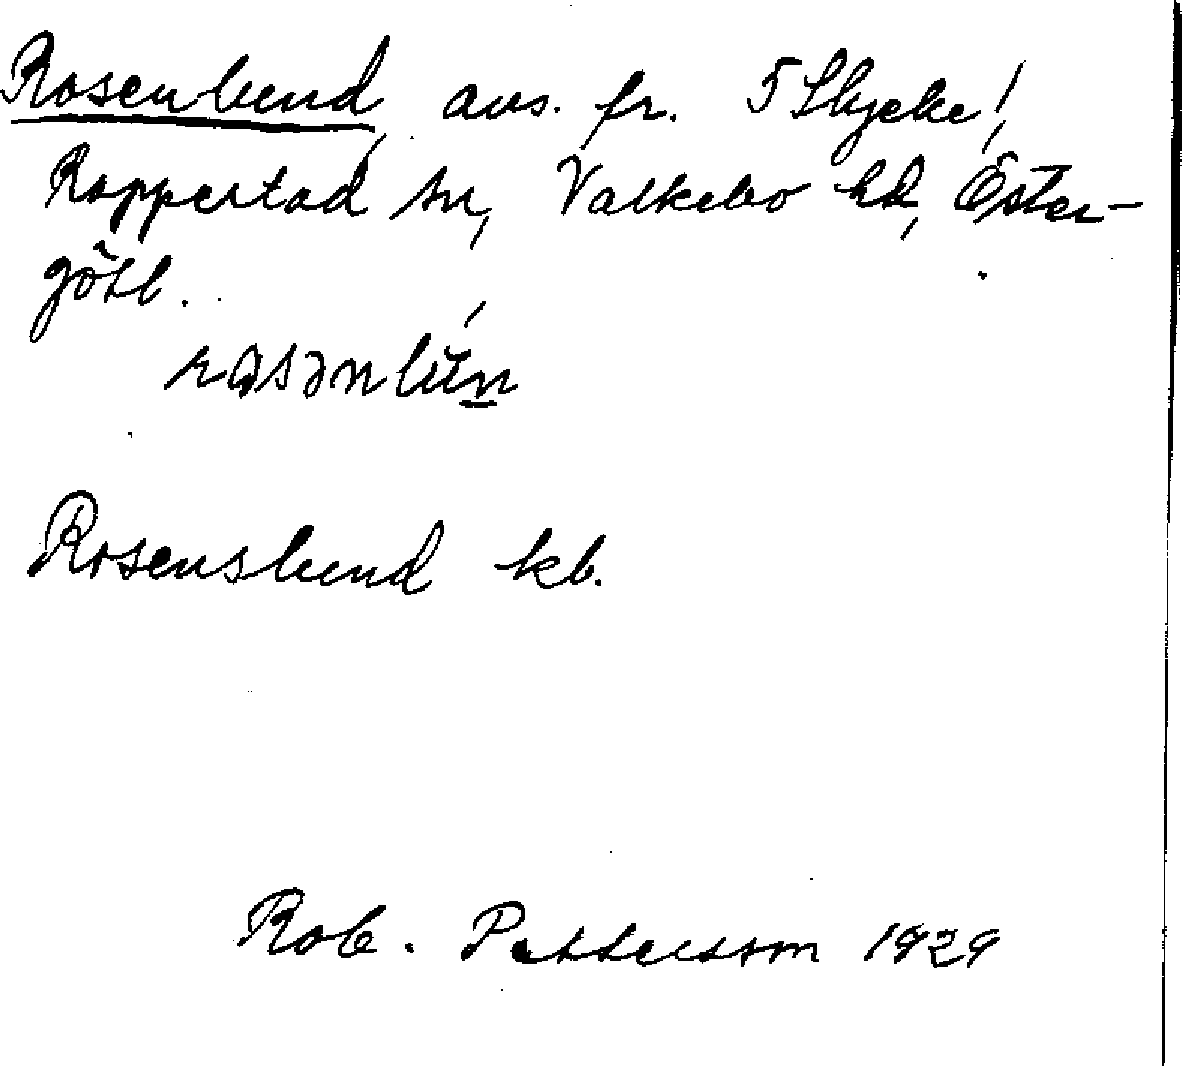 Rosenlund, avs. fr. 5 Skycke!,
Rappestad sn, Valkebo hd, Öster-
götl.
Rosenslund kb.
Rob. Pettersson 1929